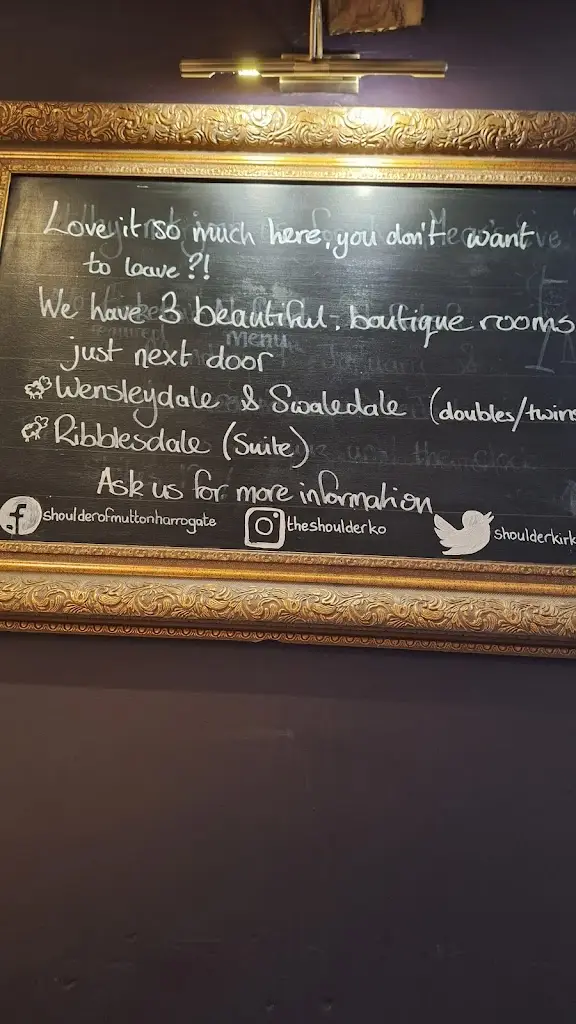 Love it so much here, you don't want
to leave?!
We have 3 beautiful, boutique rooms
just next door
Wensleydale & Swaledale (doubles/twins
Ribblesdale (Suite)
Ask us for more information
shoulderofmuttonharrogate theshoulderko shoulderkirk
menu